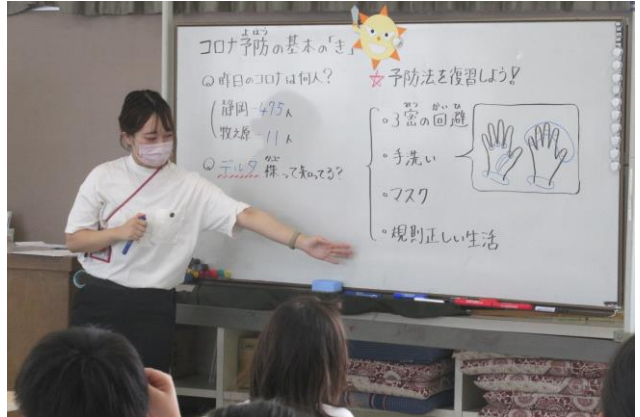 コロナ予防の基本の「き」
よぼう
Q 昨日のコロナは何人？
静岡-475人
牧之原-11人
Q デルタ株って知ってる？
かぶ
☆予防法を復習しよう！
・3密の回避
みつ かいひ
・手洗い
・マスク
・規則正しい生活